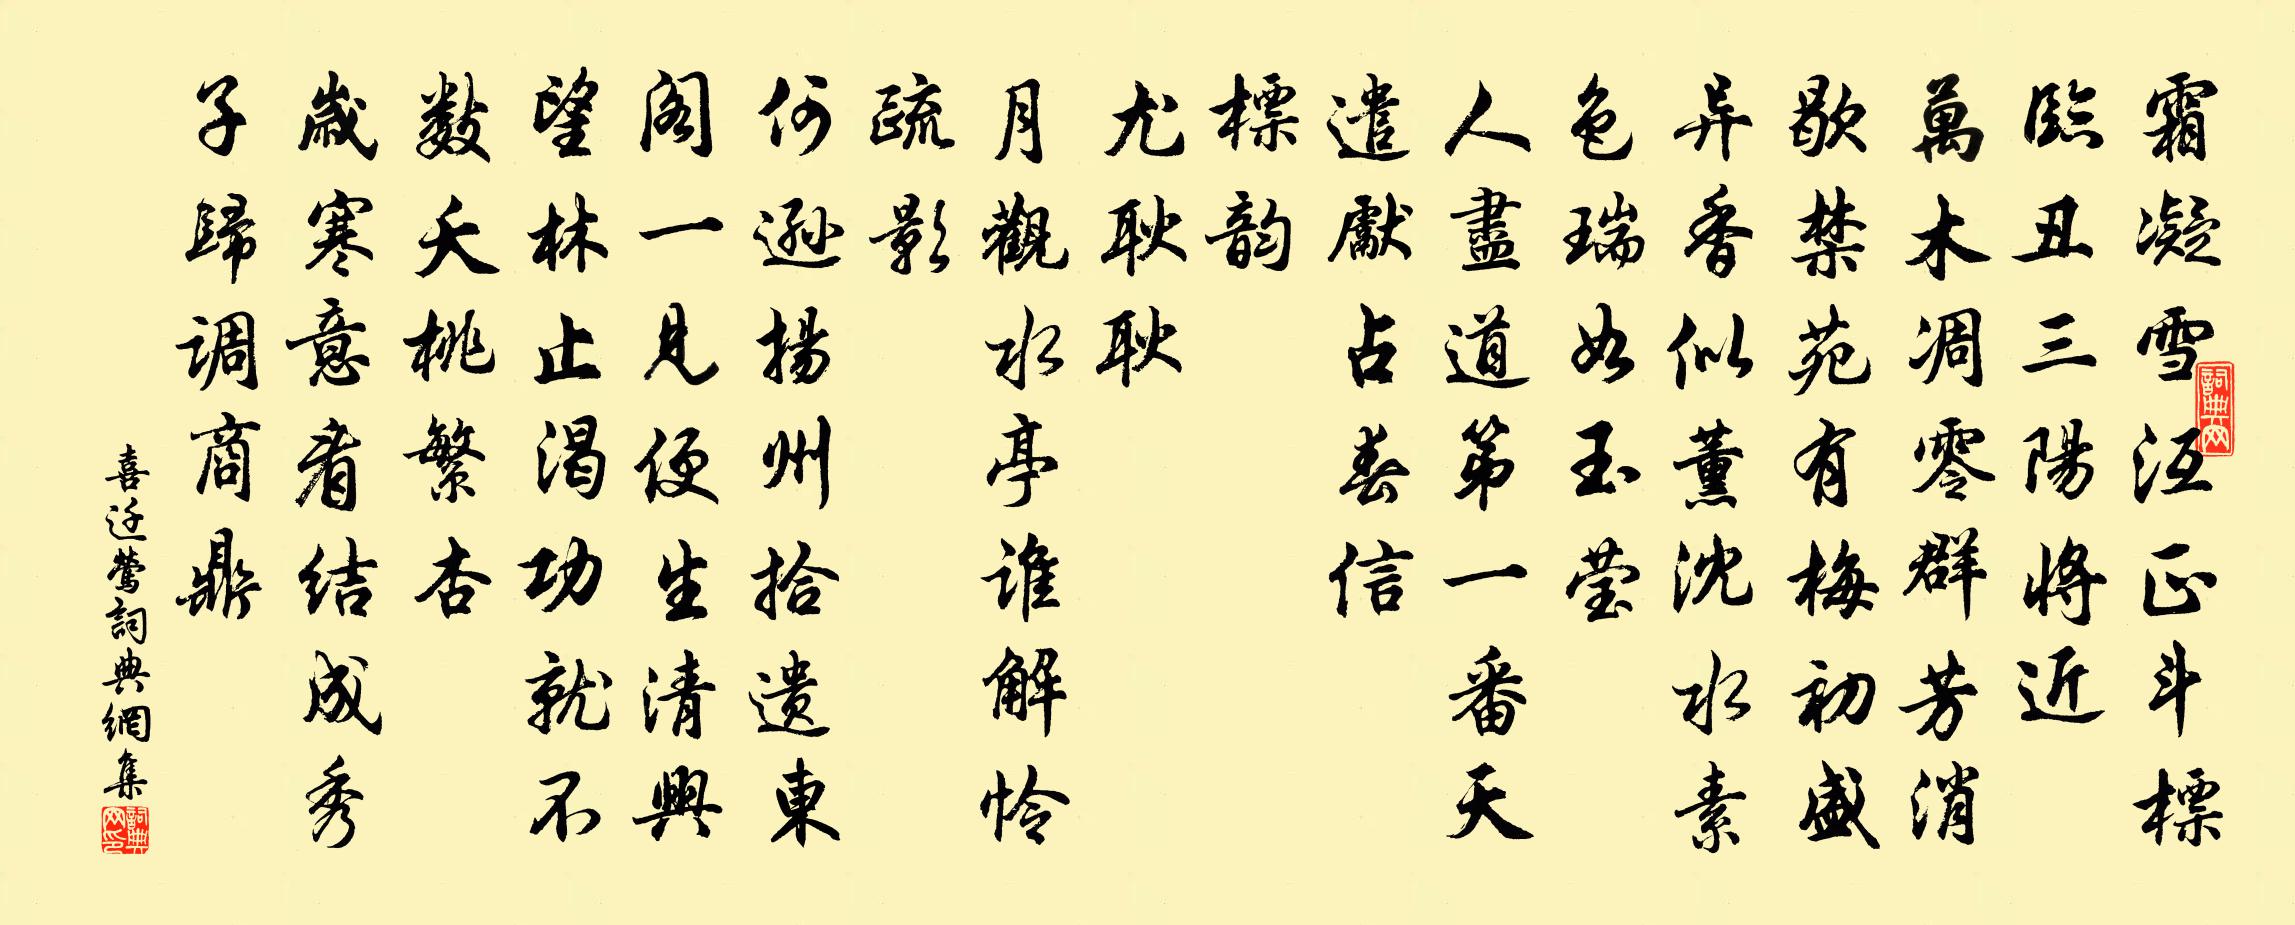 霜凝雪沍正斗標
臨丑三陽將近
萬木凋零群芳消
歇禁苑有梅初盛
异香似薰沈水素
色瑞如玉莹
人盡道第一番天
遣獻占春信
標韵
尤耿耿
月觀水亭谁解怜
疏影
何遜揚州拾遗東
阁一見便生清興
望林止渴功就不
數夭桃繁杏
歲寒意看结成秀
子歸调商鼎
喜迁莺詞典網集
詞典网
詞典网印